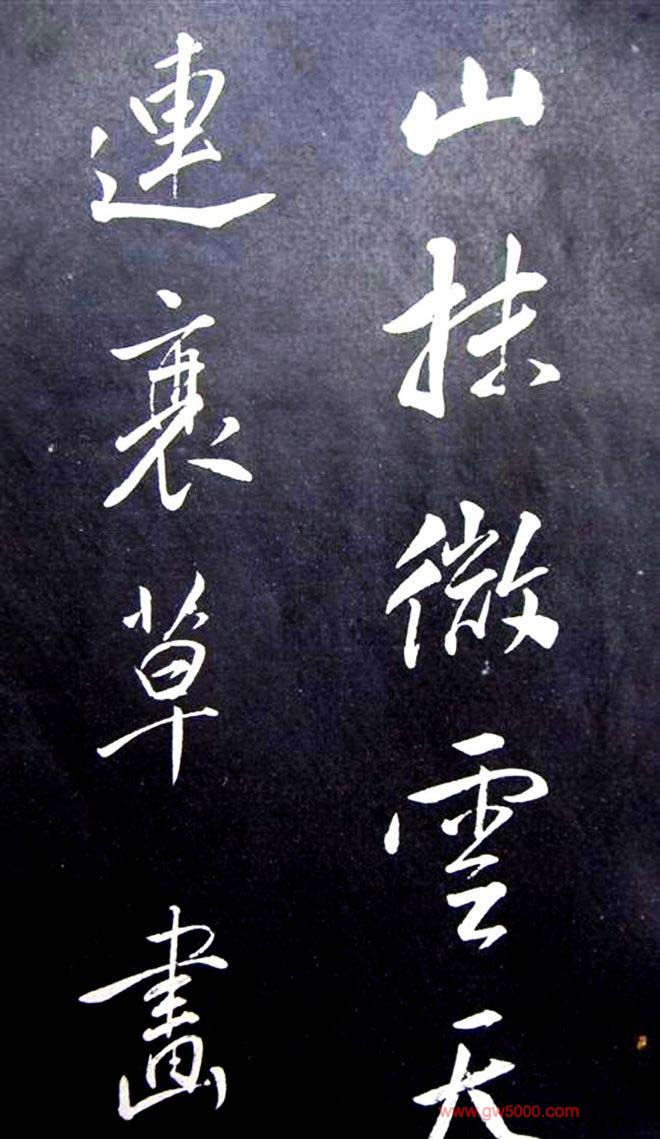 山抹微雲天
連衰草畫
www.gw5000.com